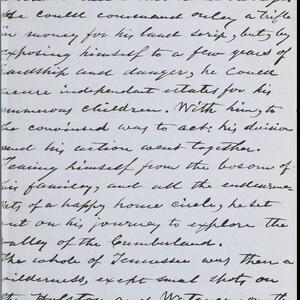 He could command only a trifle
in money for his land scrip, but, by
exposing himself to a few years of
hardship and danger, he could
secure independent estates for his
numerous children. With him, to
be convinced was to act: his decision
and his action went together.
Tearing himself from the bosom of
his family, and all the endearme
nts of a happy home circle, he set
out on his journey to explore the
valley of the Cumberland.
The whole of Tennessee was then a
wilderness, except small spots on
the Holston and Watauga on the